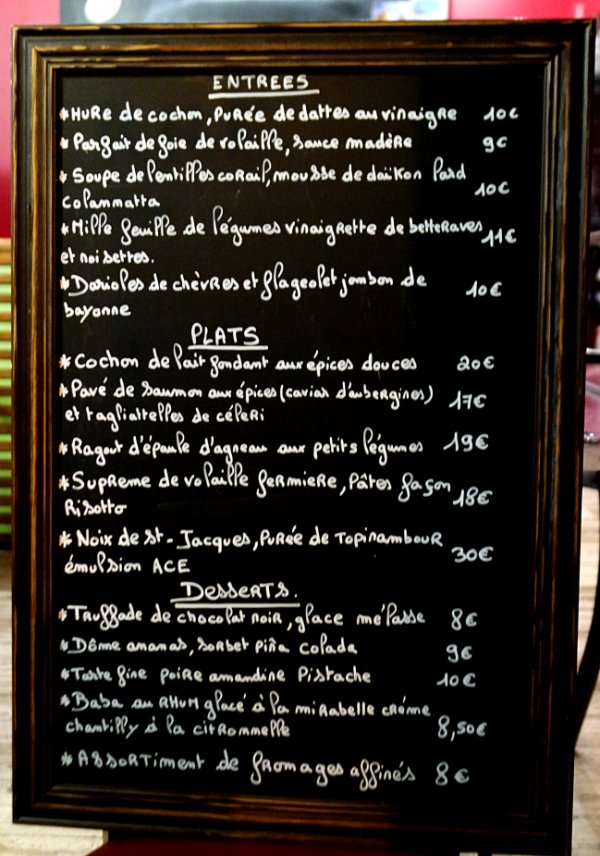 ENTREES
*HURe de cochon, PuRée de dattes au vinaigre 10€
* Parfait de foie de volaille, sauce madère 9€
* Soupe de lentilles corail, mousse de daïkon lard
colammatta 10€
*Mille feuille de légumes vinaigrette de betteraves 11€
et noisettes.
*Darioles de chèvres et flageolet jambon de 10€
bayonne
PLATS
*Cochon de lait fondant aux épices douces 20€
*Pavé de saumon aux épices (caviar d'aubergines) 17€
et tagliattelles de céleri
*Ragout d'épaule d'agneau aux petits légumes 19€
*Supreme de volaille fermiere, Pâtes façon 18€
Risotto
* Noix de St-Jacques, Purée de Topinambour
émulsion ACE 30€
Desserts.
*Truffade de chocolat noir, glace mélasse 8€
*Dôme ananas, sorbet Piña Colada 9€
*Tarte fine poire amandine Pistache 10€
*Baba au RHUM glacé à la mirabelle créme
chantilly à la citronnelle 8,50€
*Assortiment de fromages affinés 8€